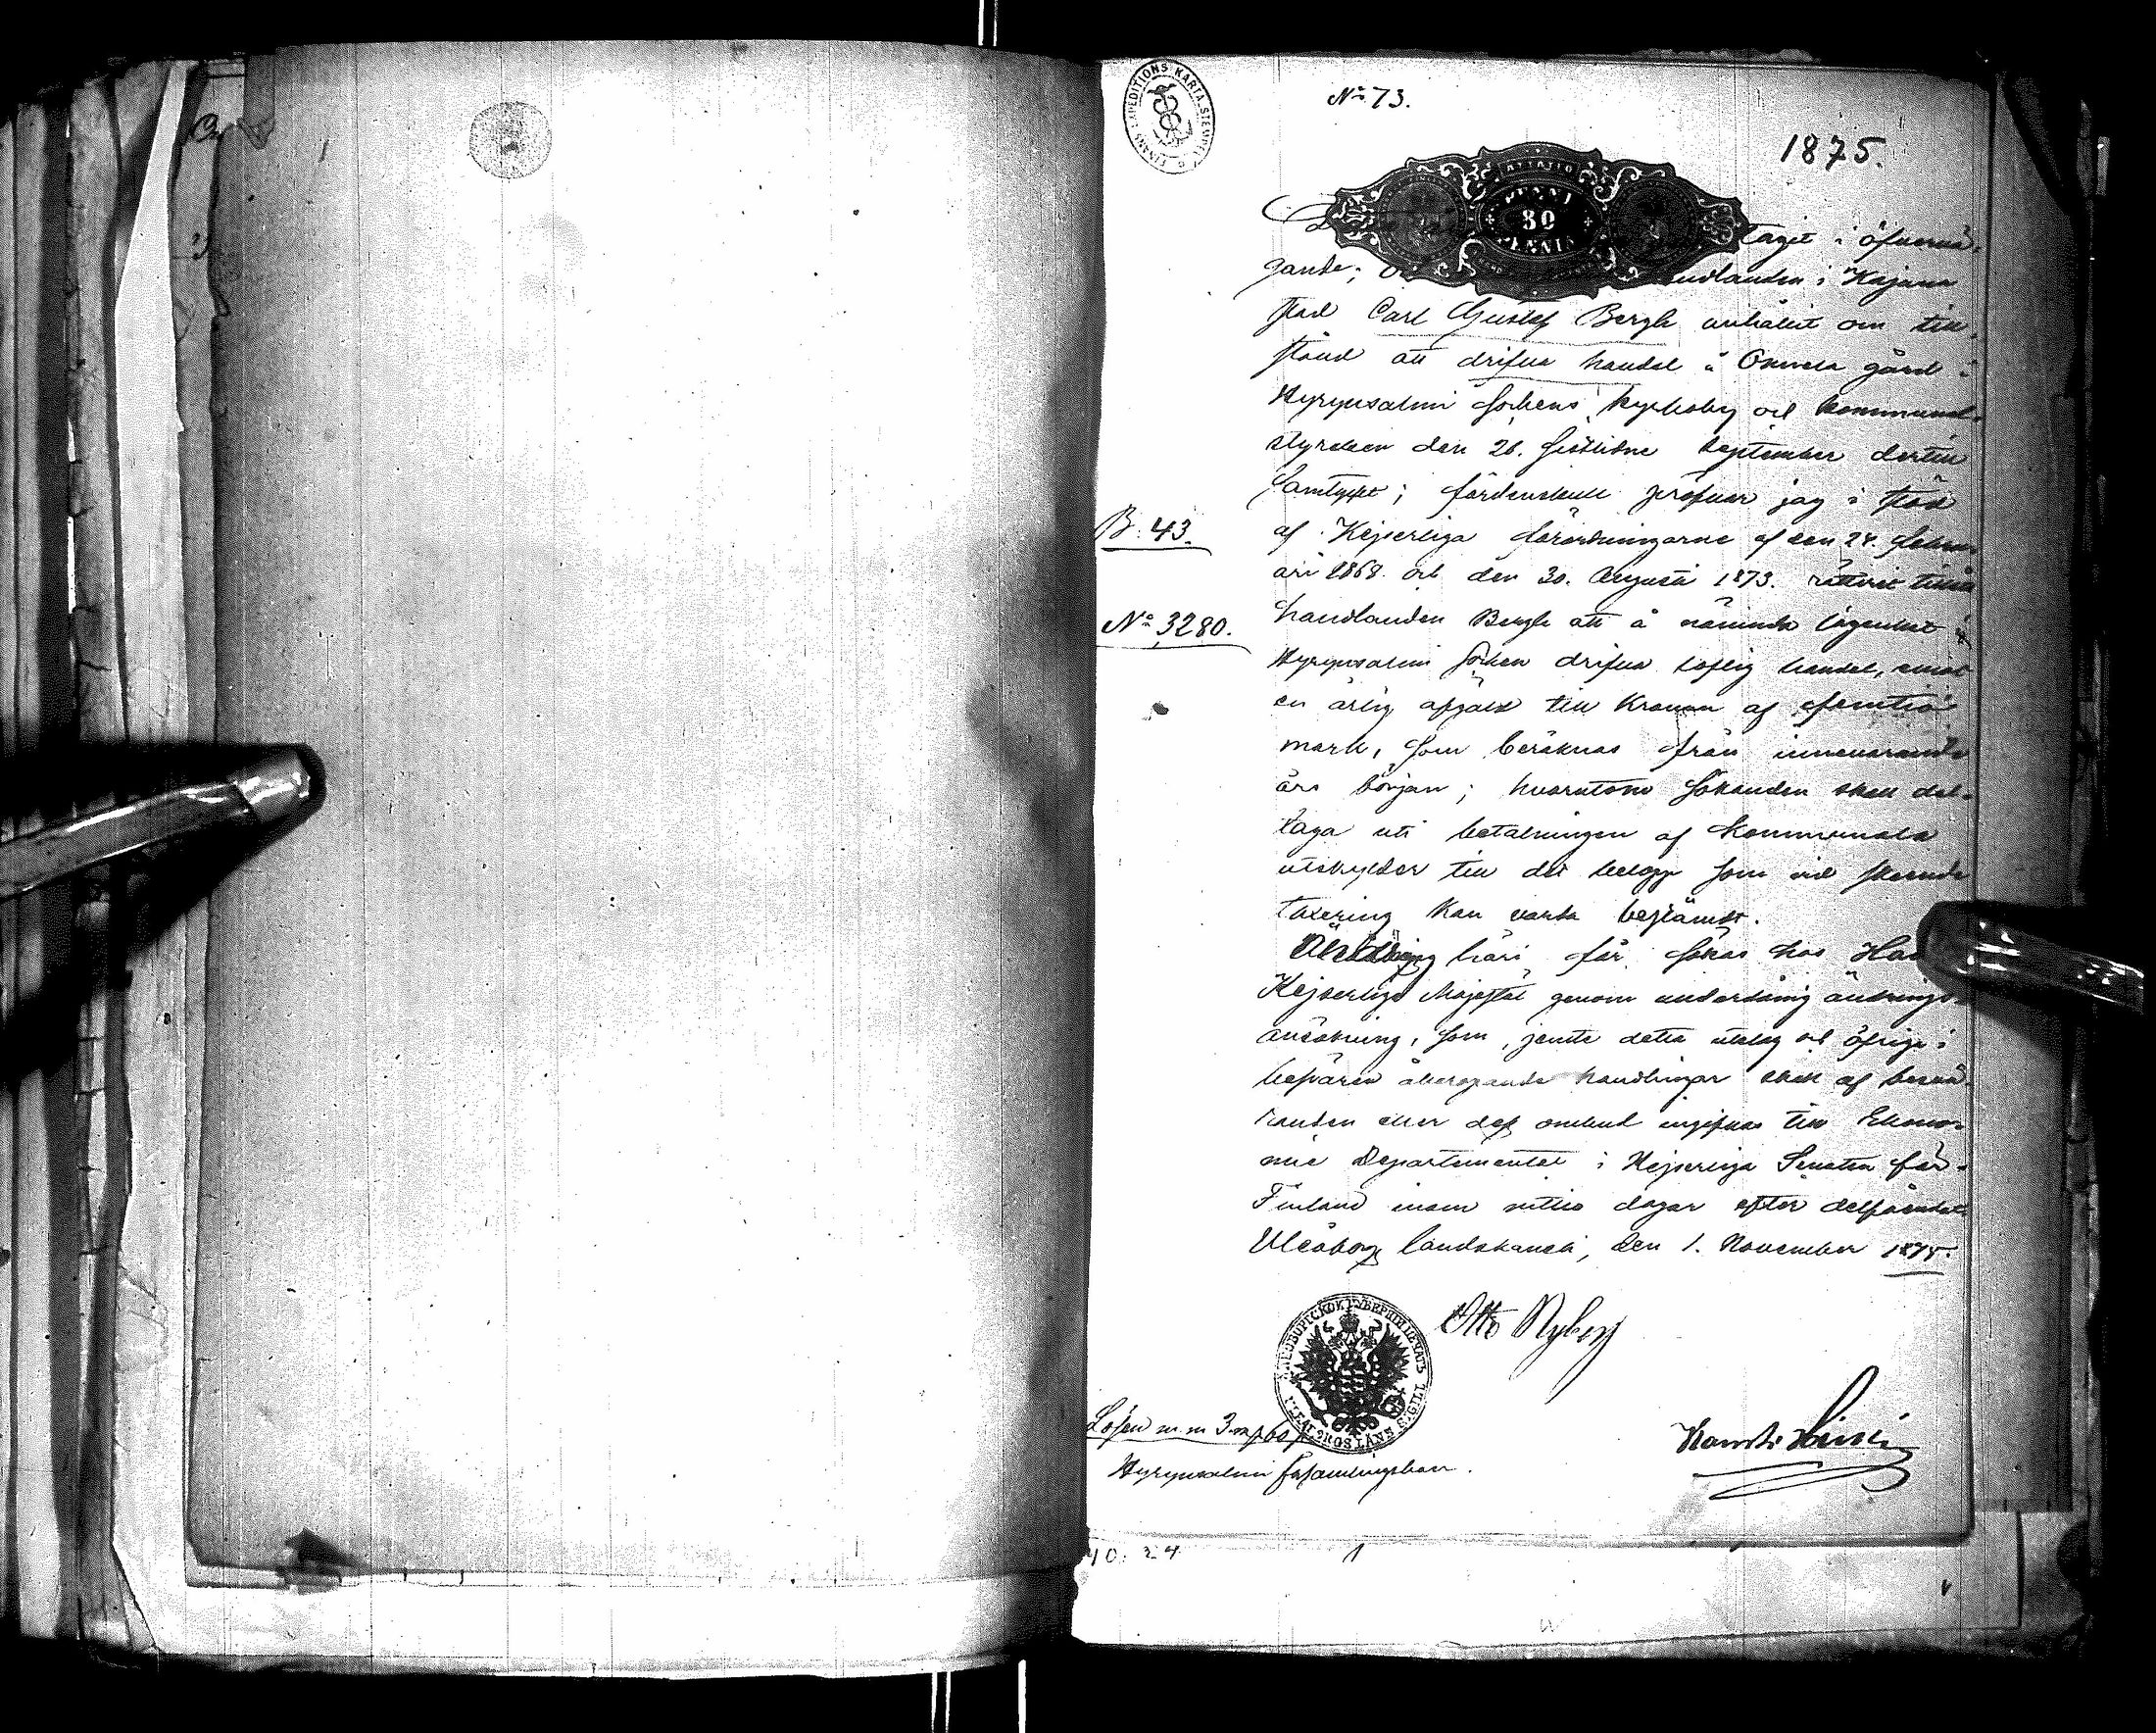 No 73.
1875.
80
taget i öfvervä-
gande; handlanden i Kajana
stad Carl Gustaf Bergh anhållit om till-
stånd att drifva handel å gård i
Hyrynsalmi Sockens kyrkoby och kommunal-
styrelsen den 26. sistlidne September dertill
samtyckt; fördenskull pröfvar jag i stöd
af Kejserliga förordningarne af den 24. Febru-
ari 1868 och den 30. Augusti 1873. rättvist tillåta
B. 43.
handlanden Bergh att å nämnda lägenhet i
No 3280.
Hyrynsalmi Socken drifva loflig handel, emot
en årlig afgäld till Kronan af femtio
mark, som beräknas från innevarande
års början; hvarutom sökanden skall del-
taga uti betalningen af kommunala
utskylder till det belopp som vid skeende
taxering kan varda bestämdt.
häri får sökas hos Hans
Kejserliga Majestät genom underdånig ändrings-
ansökning, som, jemte detta utslag och öfriga i
besvären åberopande handlingar skall af besvä-
randen eller dess ombud ingifvas till Ekono-
mie Departementet i Kejserliga Senaten för
Finland inom nittio dagar efter delfåendet.
Uleåborgs landskansli, den 1. November 1875.
Otto Nyberg
Lösen m. m 3 mk 60 p
Hyrynsalmi
40: 24